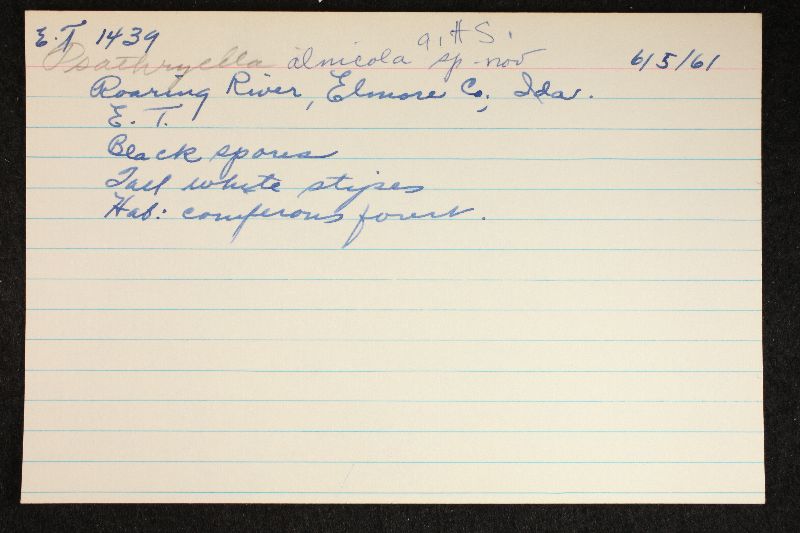 E.T 1439
Psathyrella alnicola A.H.S. sp. nov 6/5/61
Roaring River, Elmore Co., Ida.
E. T.
Black spores
Tall white stipes
Hab: coniferous forest.